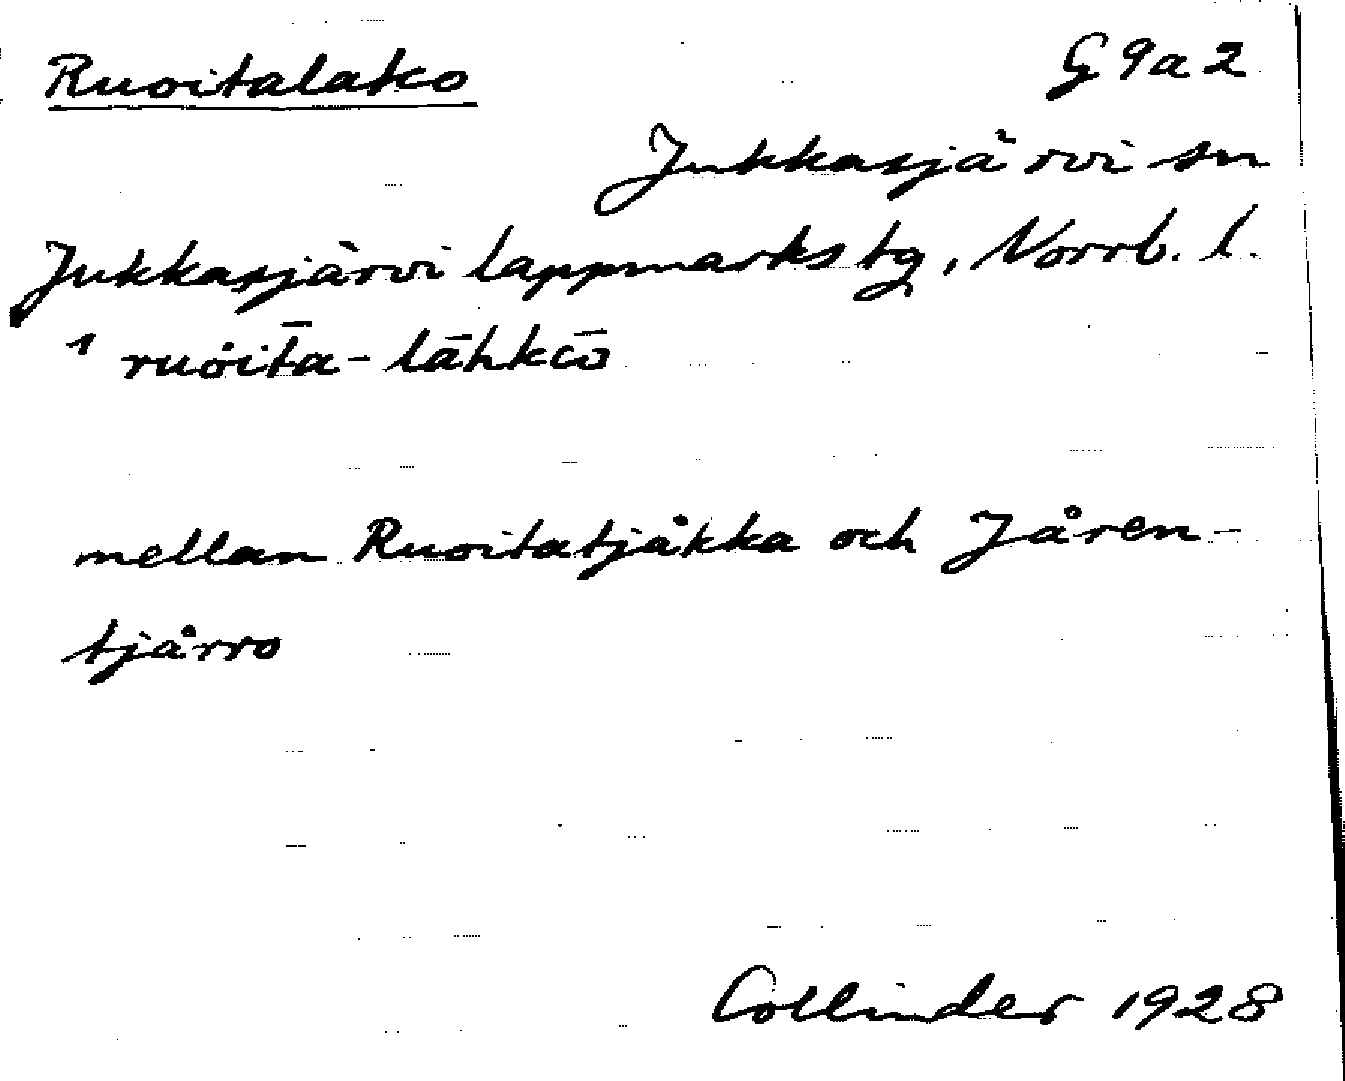 Ruoitalako G9a2
Jukkasjärvi sn
Jukkasjärvi lappmarks tg, Norrb. l.
1 ruȯit̄a-lāhkō
mellan Ruoitatjåkka och Jåren-
tjårro
Collinder 1928